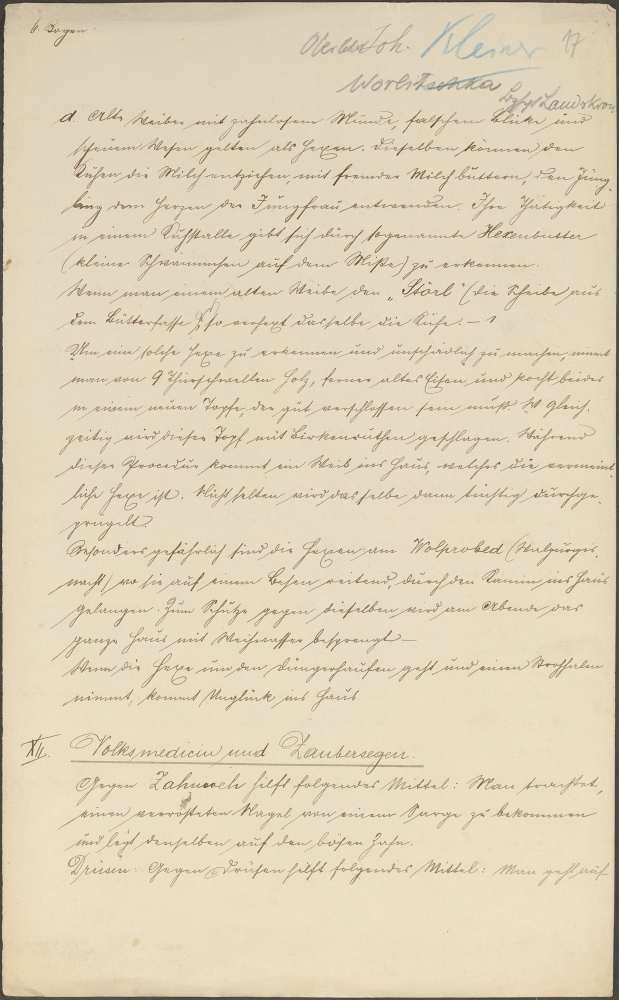 6. Bogen.
Oberlehr. Joh. Kleiner 17
Worlitschka
Landskron
d. Alte Weiber mit zahnlosem Munde, falschem Blicke und
scheuem Wesen gelten als Hexen. Dieselben können den
Kühen die Milch entziehen, mit fremder Milch buttern, den Jüng-
ling dem Herzen der Jungfrau entwenden. Ihre Thätigkeit
in einem Kuhstalle gibt sich durch sogenannte Hexenbutter
(kleine Schwämmchen auf dem Miste) zu erkennen.
Wenn man einem alten Weibe den „Störl" (die Scheibe aus
dem Butterfasse), so verhext dasselbe die Kühe. –
Um eine solche Hexe zu erkennen und unschädlich zu machen, nimmt
man von 9 Thürschwellen Holz, ferner altes Eisen und kocht beides
in einem neuen Topfe, der gut verschlossen sein muß. Gleich-
zeitig wird dieser Topf mit Birkenruthen geschlagen. Während
dieser Procedur kommt ein Weib ins Haus, welches die vermeint-
liche Hexe ist. Nicht selten wird dasselbe dann tüchtig durchge-
prügelt.
Besonders gefährlich sind die Hexen am Wolprobed (Walpurgis-
nacht), wo sie auf einem Besen reitend, durch den Kamin ins Haus
gelangen. Zum Schutze gegen dieselben wird am Abende das
ganze Haus mit Weihwasser besprengt –
Wenn die Hexe um den Düngerhaufen geht und einen Strohhalm
nimmt, kommt Unglück ins Haus
XII. Volksmedicin und Zaubersegen.
Gegen Zahnweh hilft folgendes Mittel: Man trachtet,
einen verrosteten Nagel von einem Sarge zu bekommen
und legt denselben auf den bösen Zahn.
Drüsen: Gegen Drüsen hilft folgendes Mittel: Man geht auf